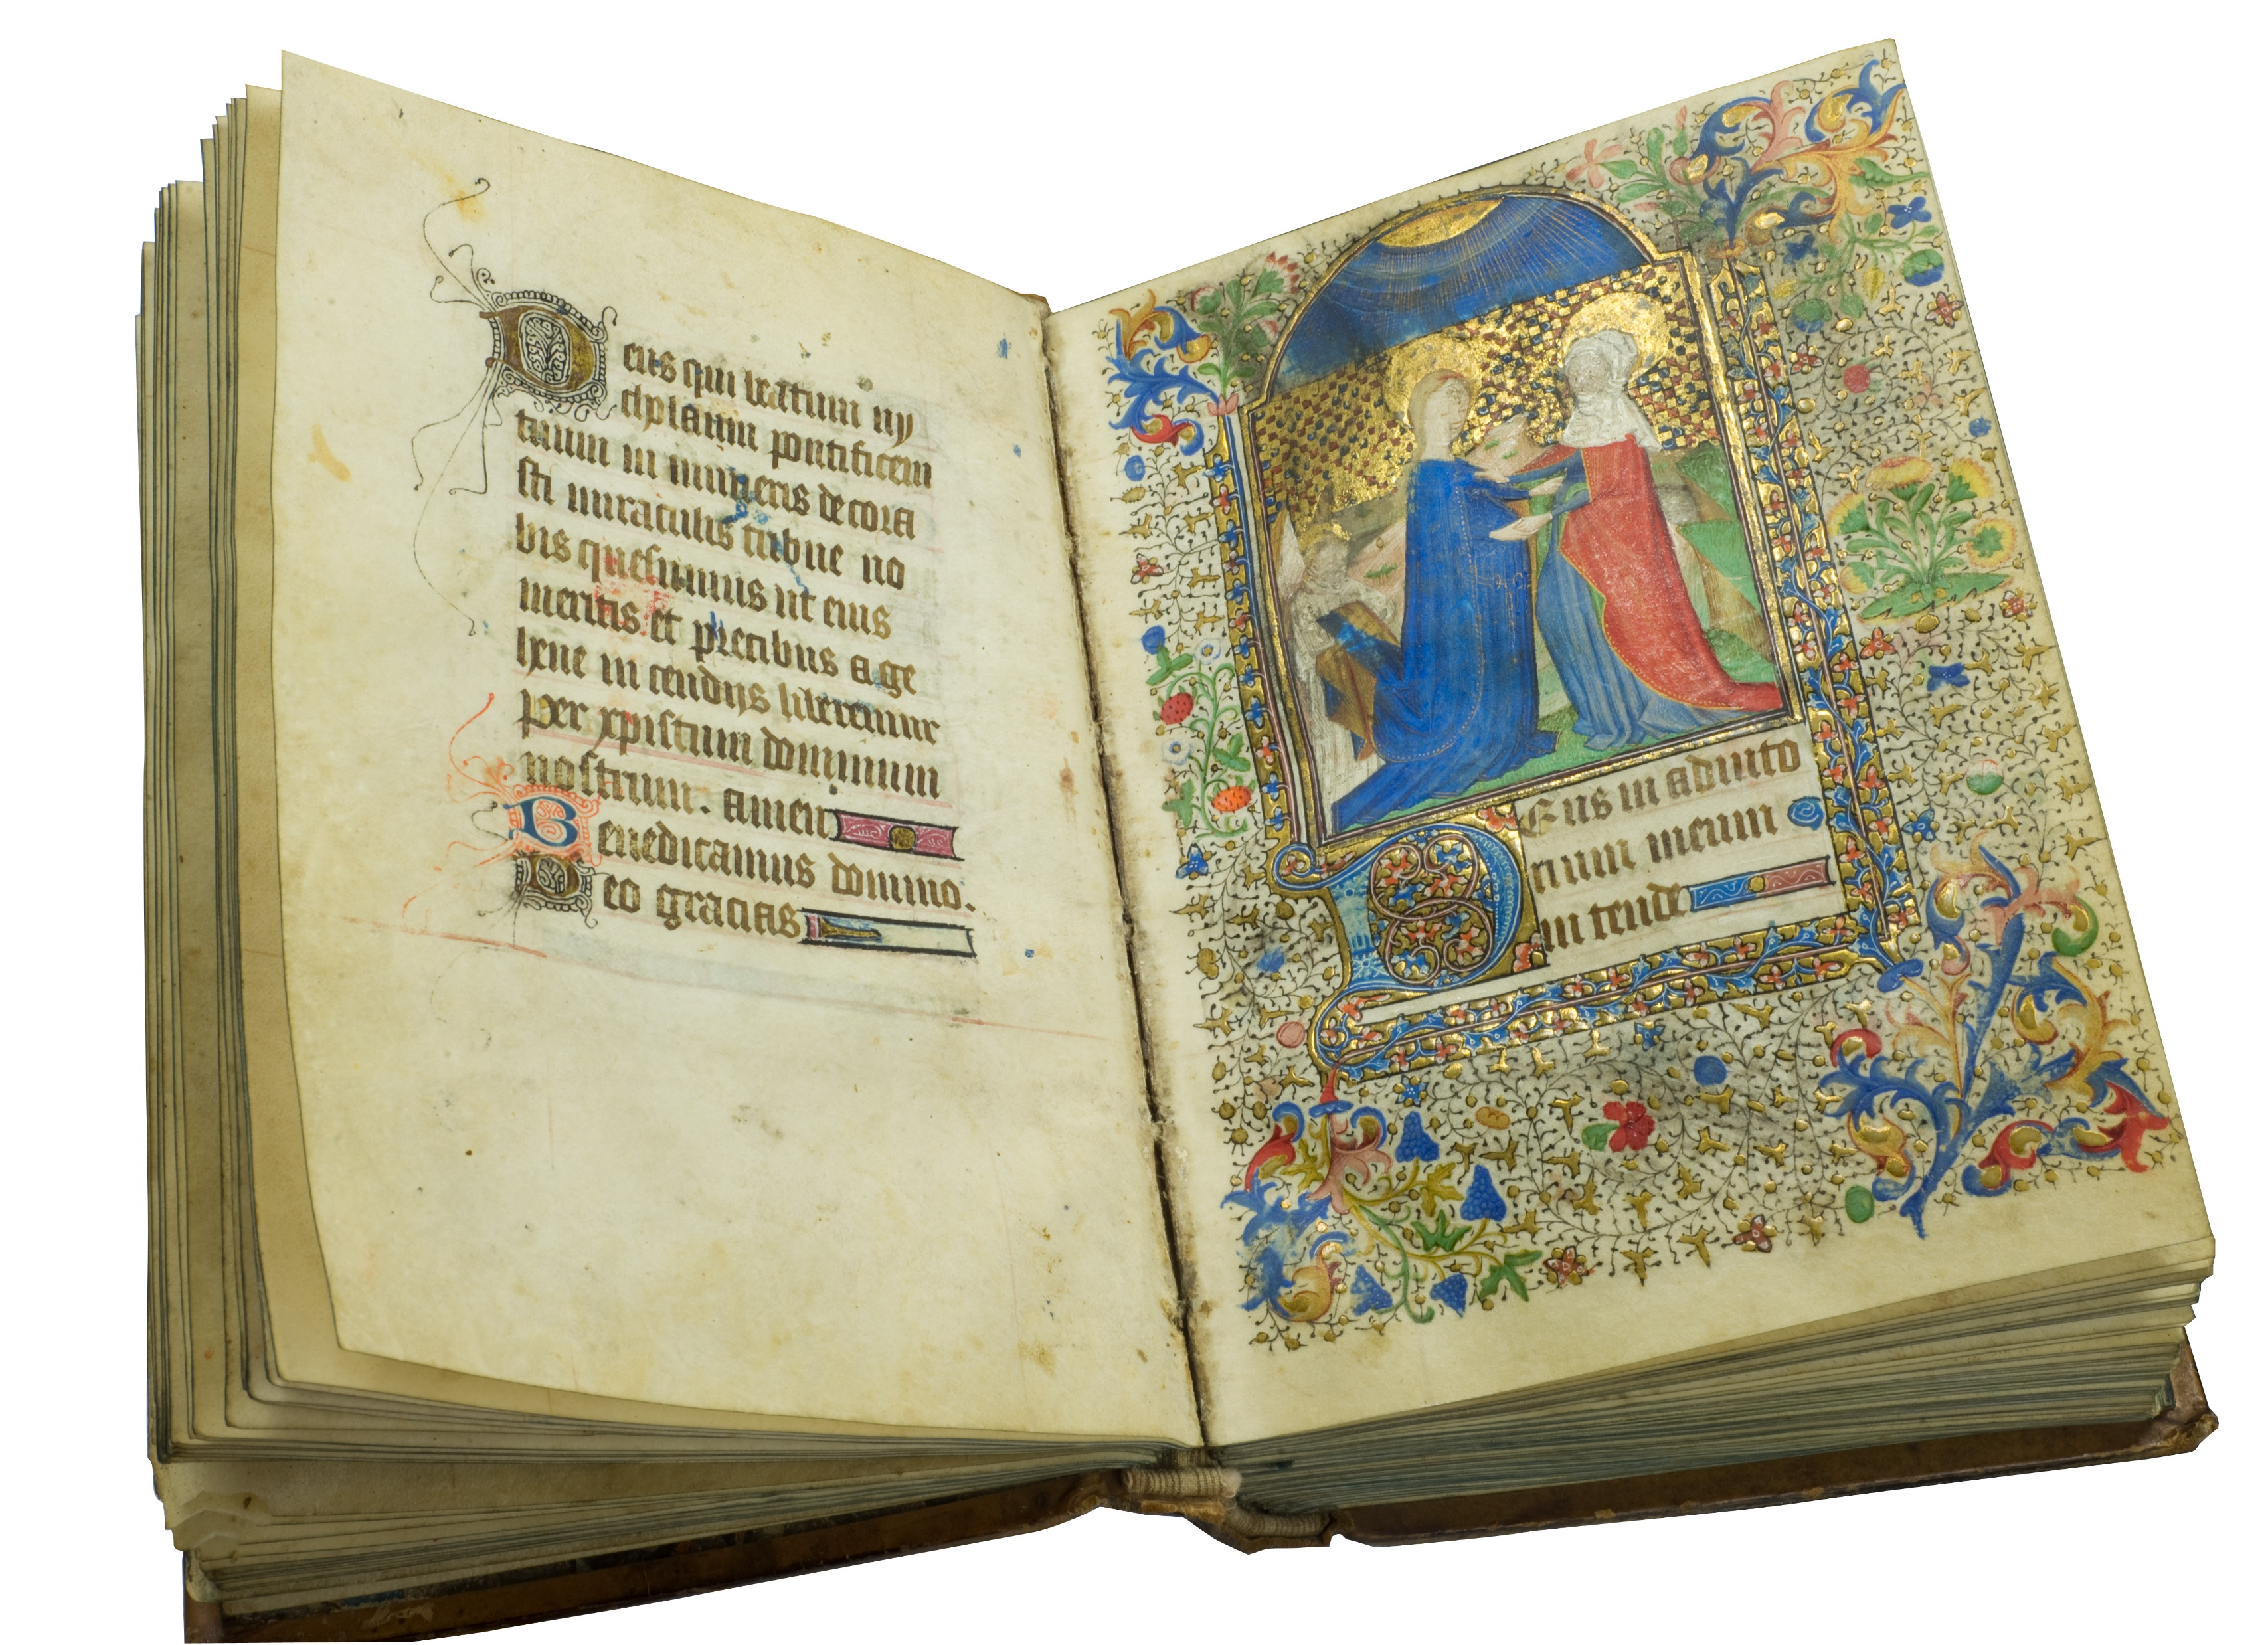 Deus qui beatum ny
cholaum pontificem
tuum in numeris decora
sti miraculis tribue no
bis quesumus ut eius
meritis et precibus a ge
henne in cendijs liberemur
per xpistum dominum
nostrum. amen
Benedicamus domino.
Deo gracias
Deus in adiuto
rium meum
in tende